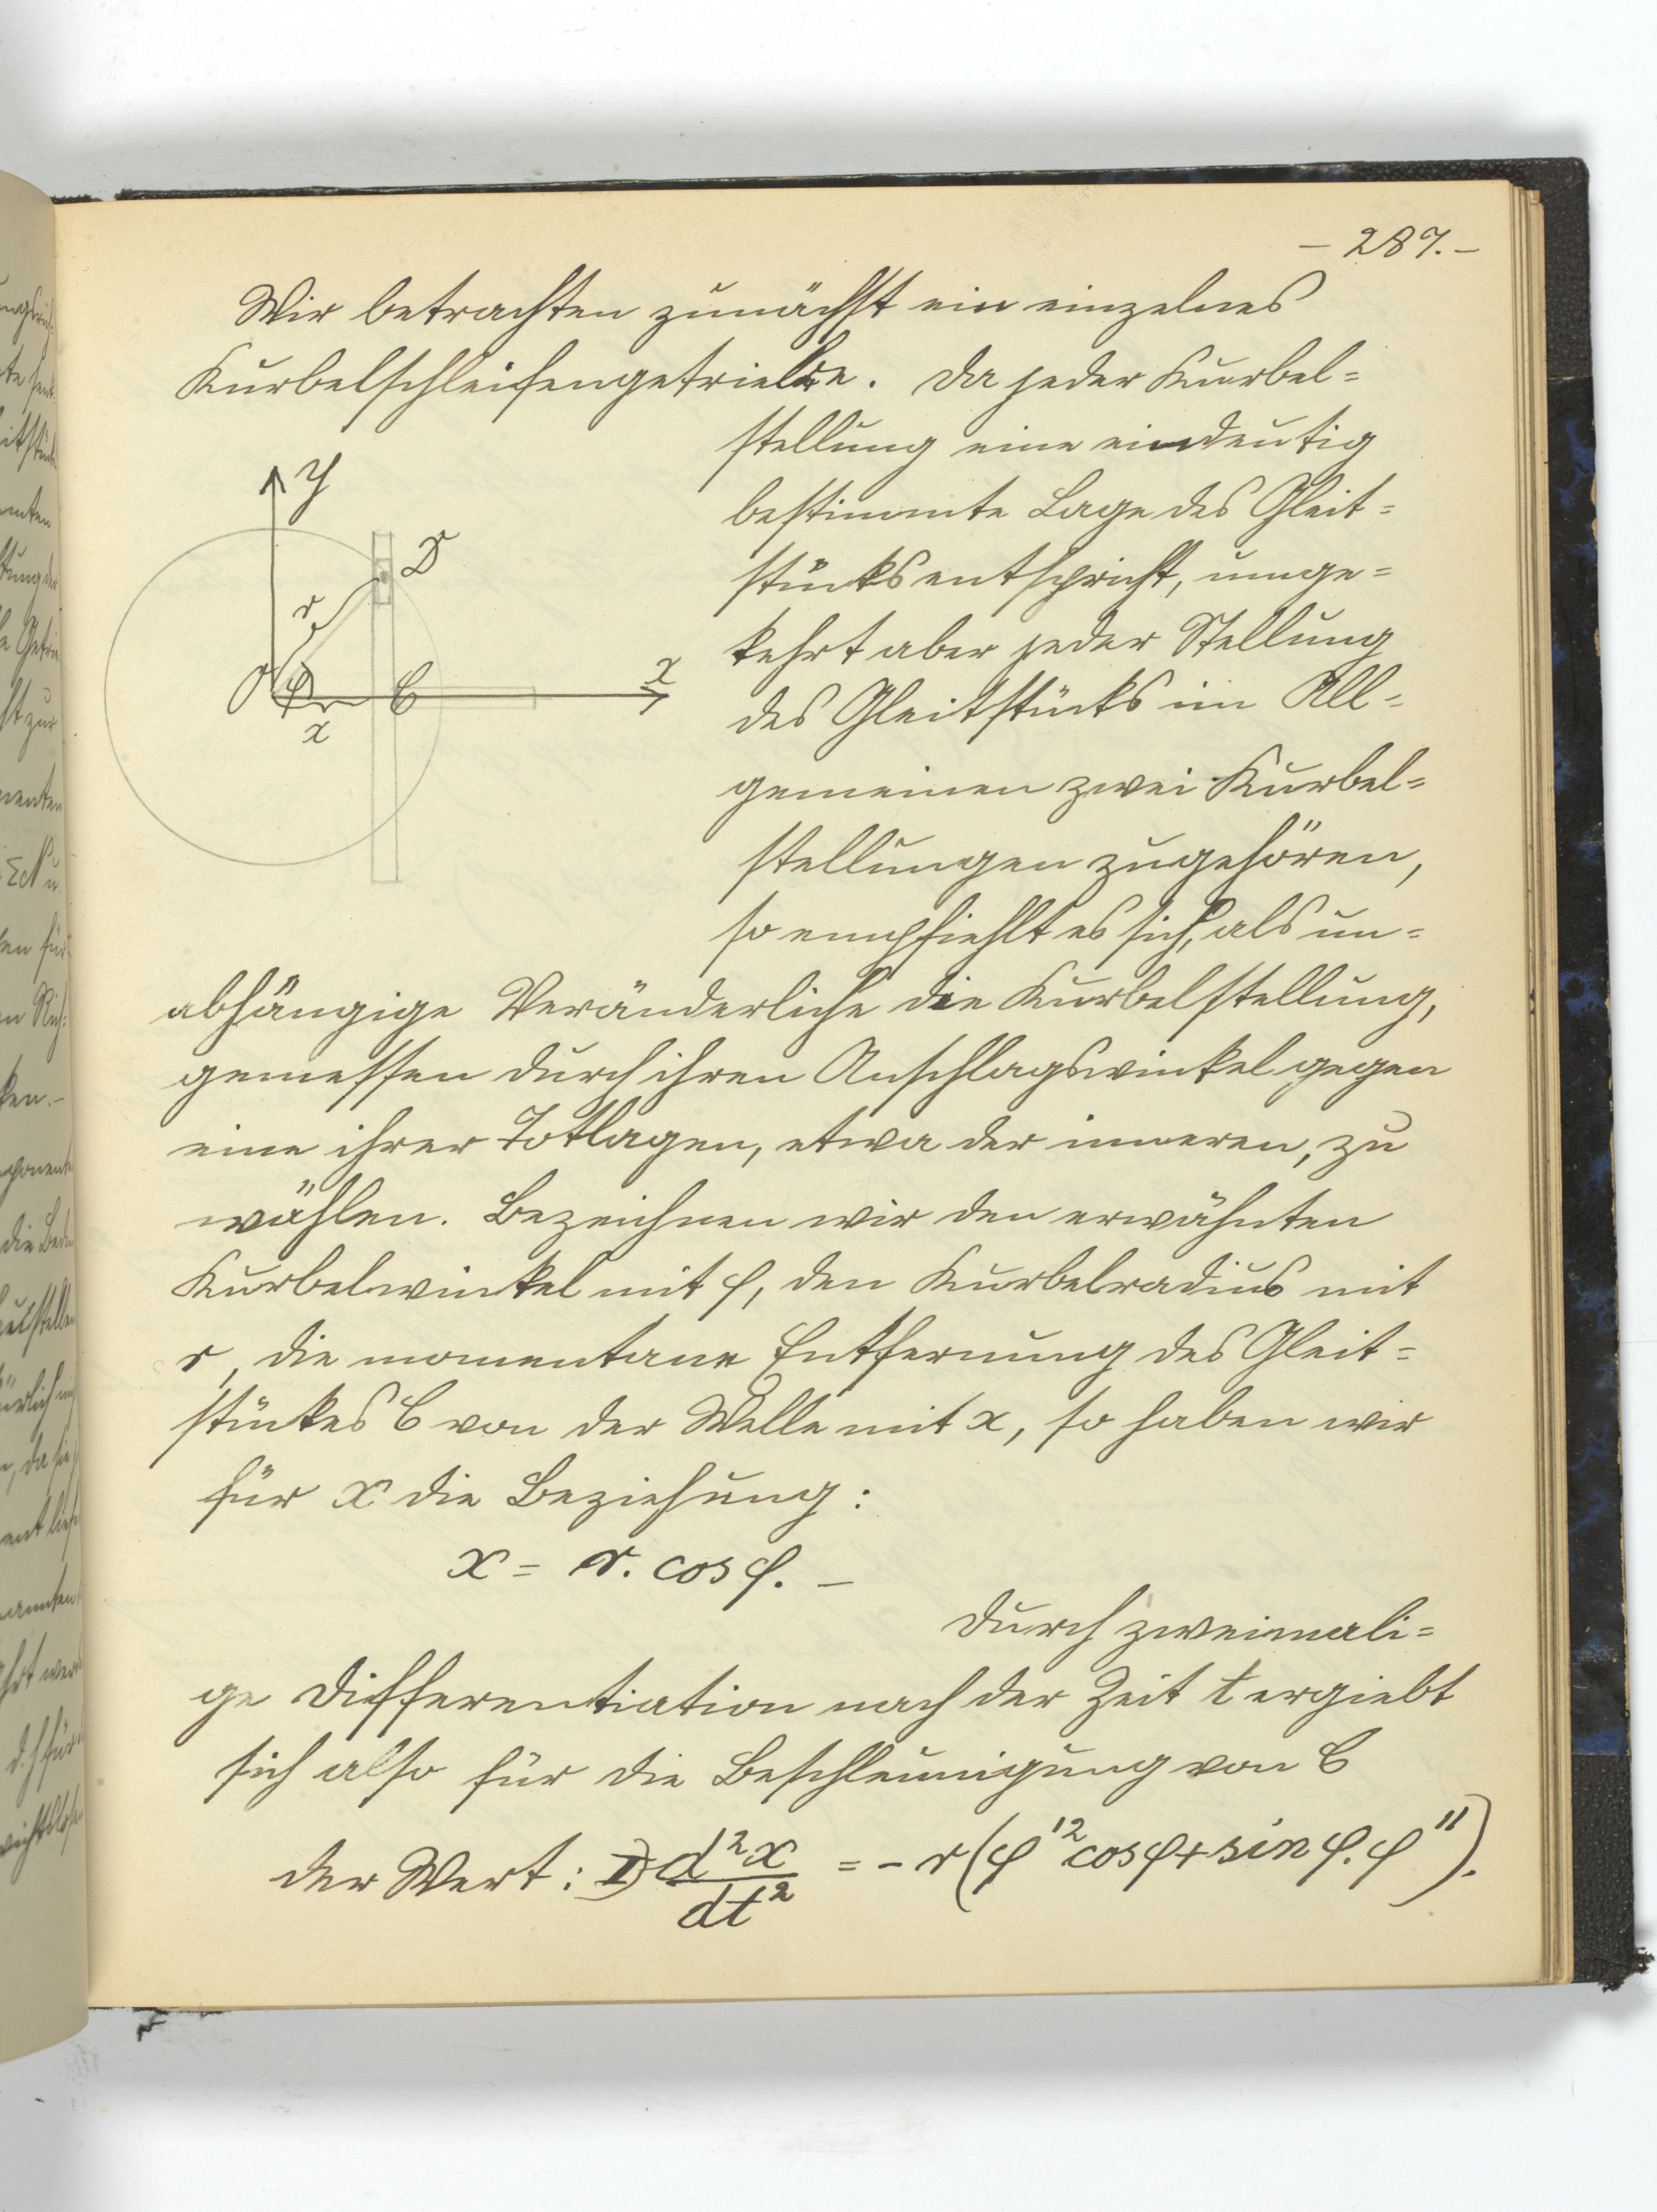 – 287. –
Wir betrachten zunächst ein einzelnes
Kurbelschleifengetriebe. Da jeder Kurbel=
stellung eine eindeutig
bestimmte Lage des Gleit=
stücks entspricht, umge=
kehrt aber jeder Stellung
des Gleitstücks im All=
gemeinen zwei Kurbel=
stellungen zugehören,
so empfiehlt es sich, als un=
abhängige Veränderliche die Kurbelstellung,
gemessen durch ihren Anschlagswinkel gegen
eine ihrer Totlagen, etwa der inneren, zu
wählen. Bezeichnen wir den erwähnten
Kurbelwinkel mit φ, den Kurbelradius mit
r, die momentane Entfernung des Gleit=
stückes C von der Welle mit x, so haben wir
für x die Beziehung:
x = r. cos φ. –
Durch zweimali=
ge Differentiation nach der Zeit t ergiebt
sich also für die Beschleunigung von C
der Wert: I) d²x/dt² = – r (φ'² cos φ + sin φ. φ'').
y
D
r
O
φ
C
x
x